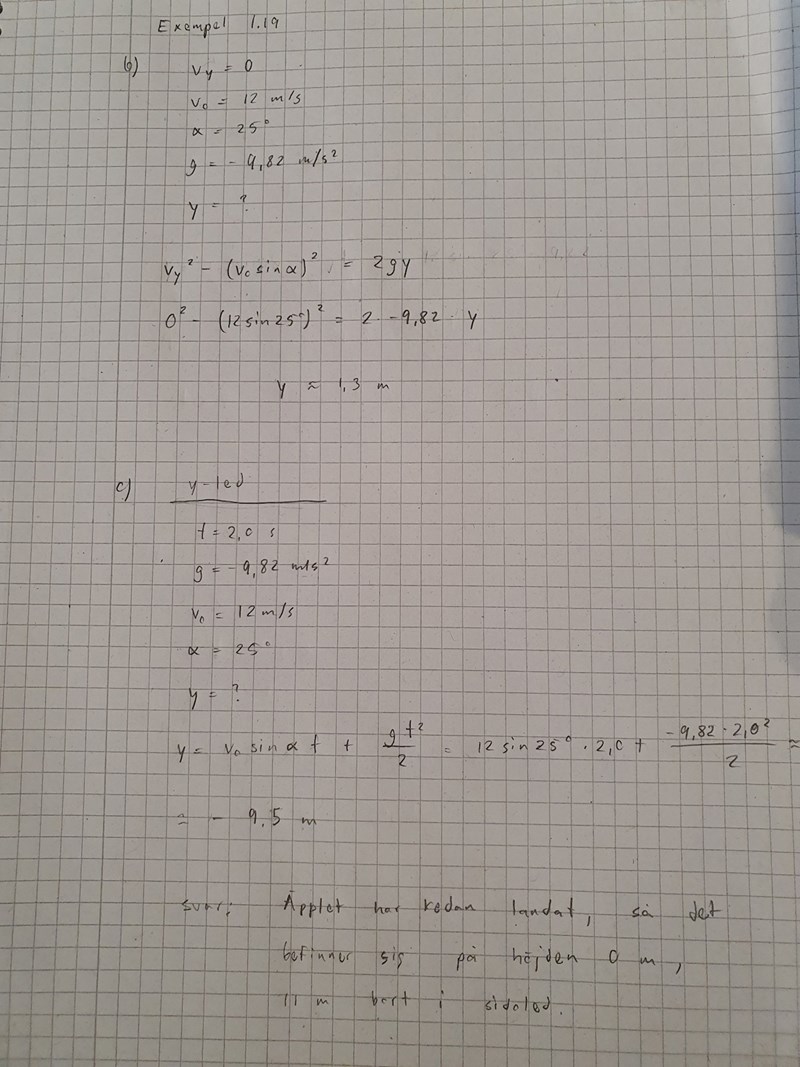 Exempel 1.19
b) vy = 0
v0 = 12 m/s
α = 25°
g = -9,82 m/s²
y = ?
vy² - (v0 sin α)² = 2gy
0² - (12 sin 25°)² = 2 · -9,82 · y
y ≈ 1,3 m
c) y-led
t = 2,0 s
g = -9,82 m/s²
v0 = 12 m/s
α = 25°
y = ?
y = v0 sin α t + gt²/2 = 12 sin 25° · 2,0 + -9,82 · 2,0²/2 ≈
≈ - 9,5 m
svar: Äpplet har redan landat, så det
befinner sig på höjden 0 m,
11 m bort i sidoled.